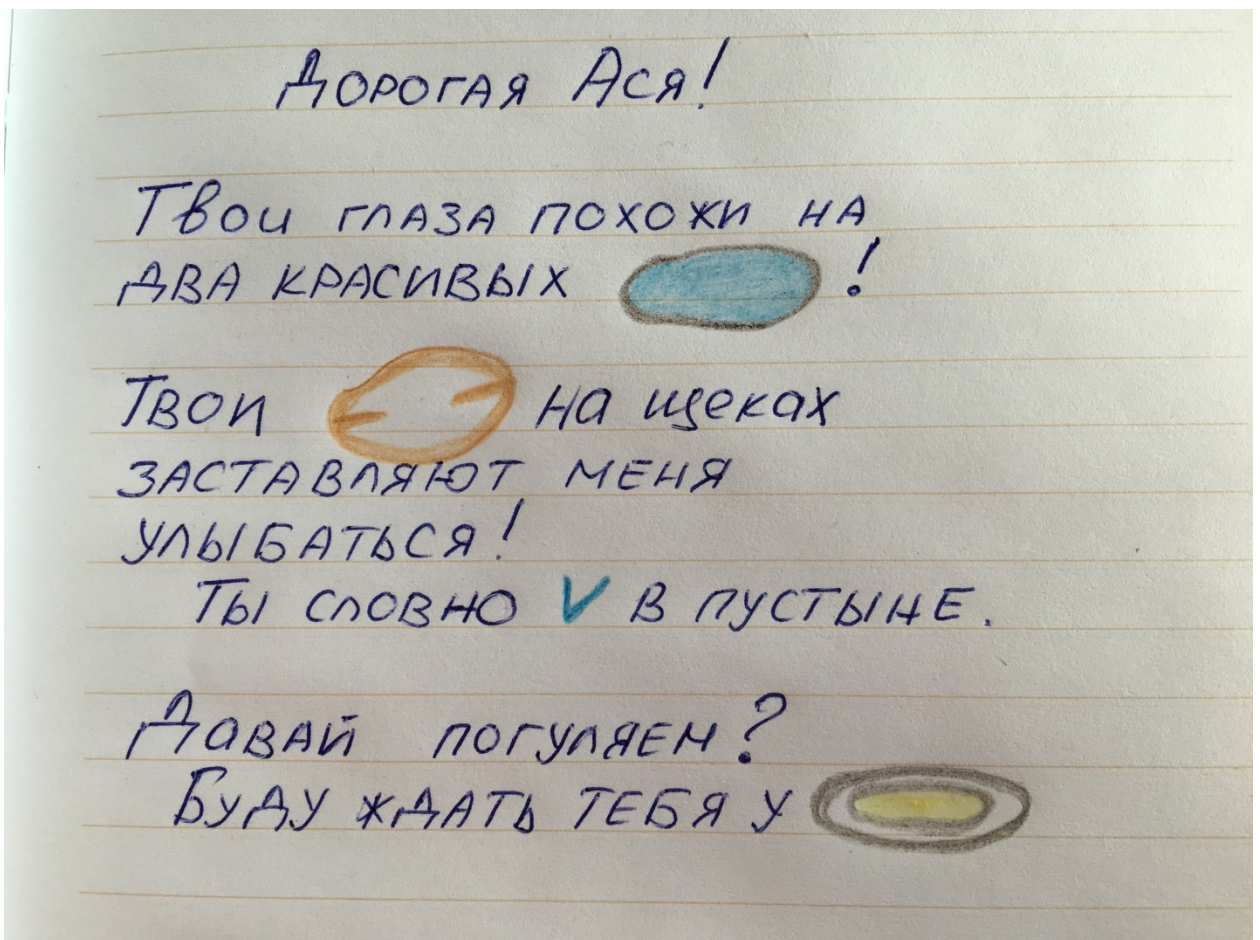 Дорогая Ася!
Твои глаза похожи на
два красивых !
Твои на щеках
заставляют меня
улыбаться!
Ты словно V в пустыне.
Давай погуляем?
Буду ждать тебя у